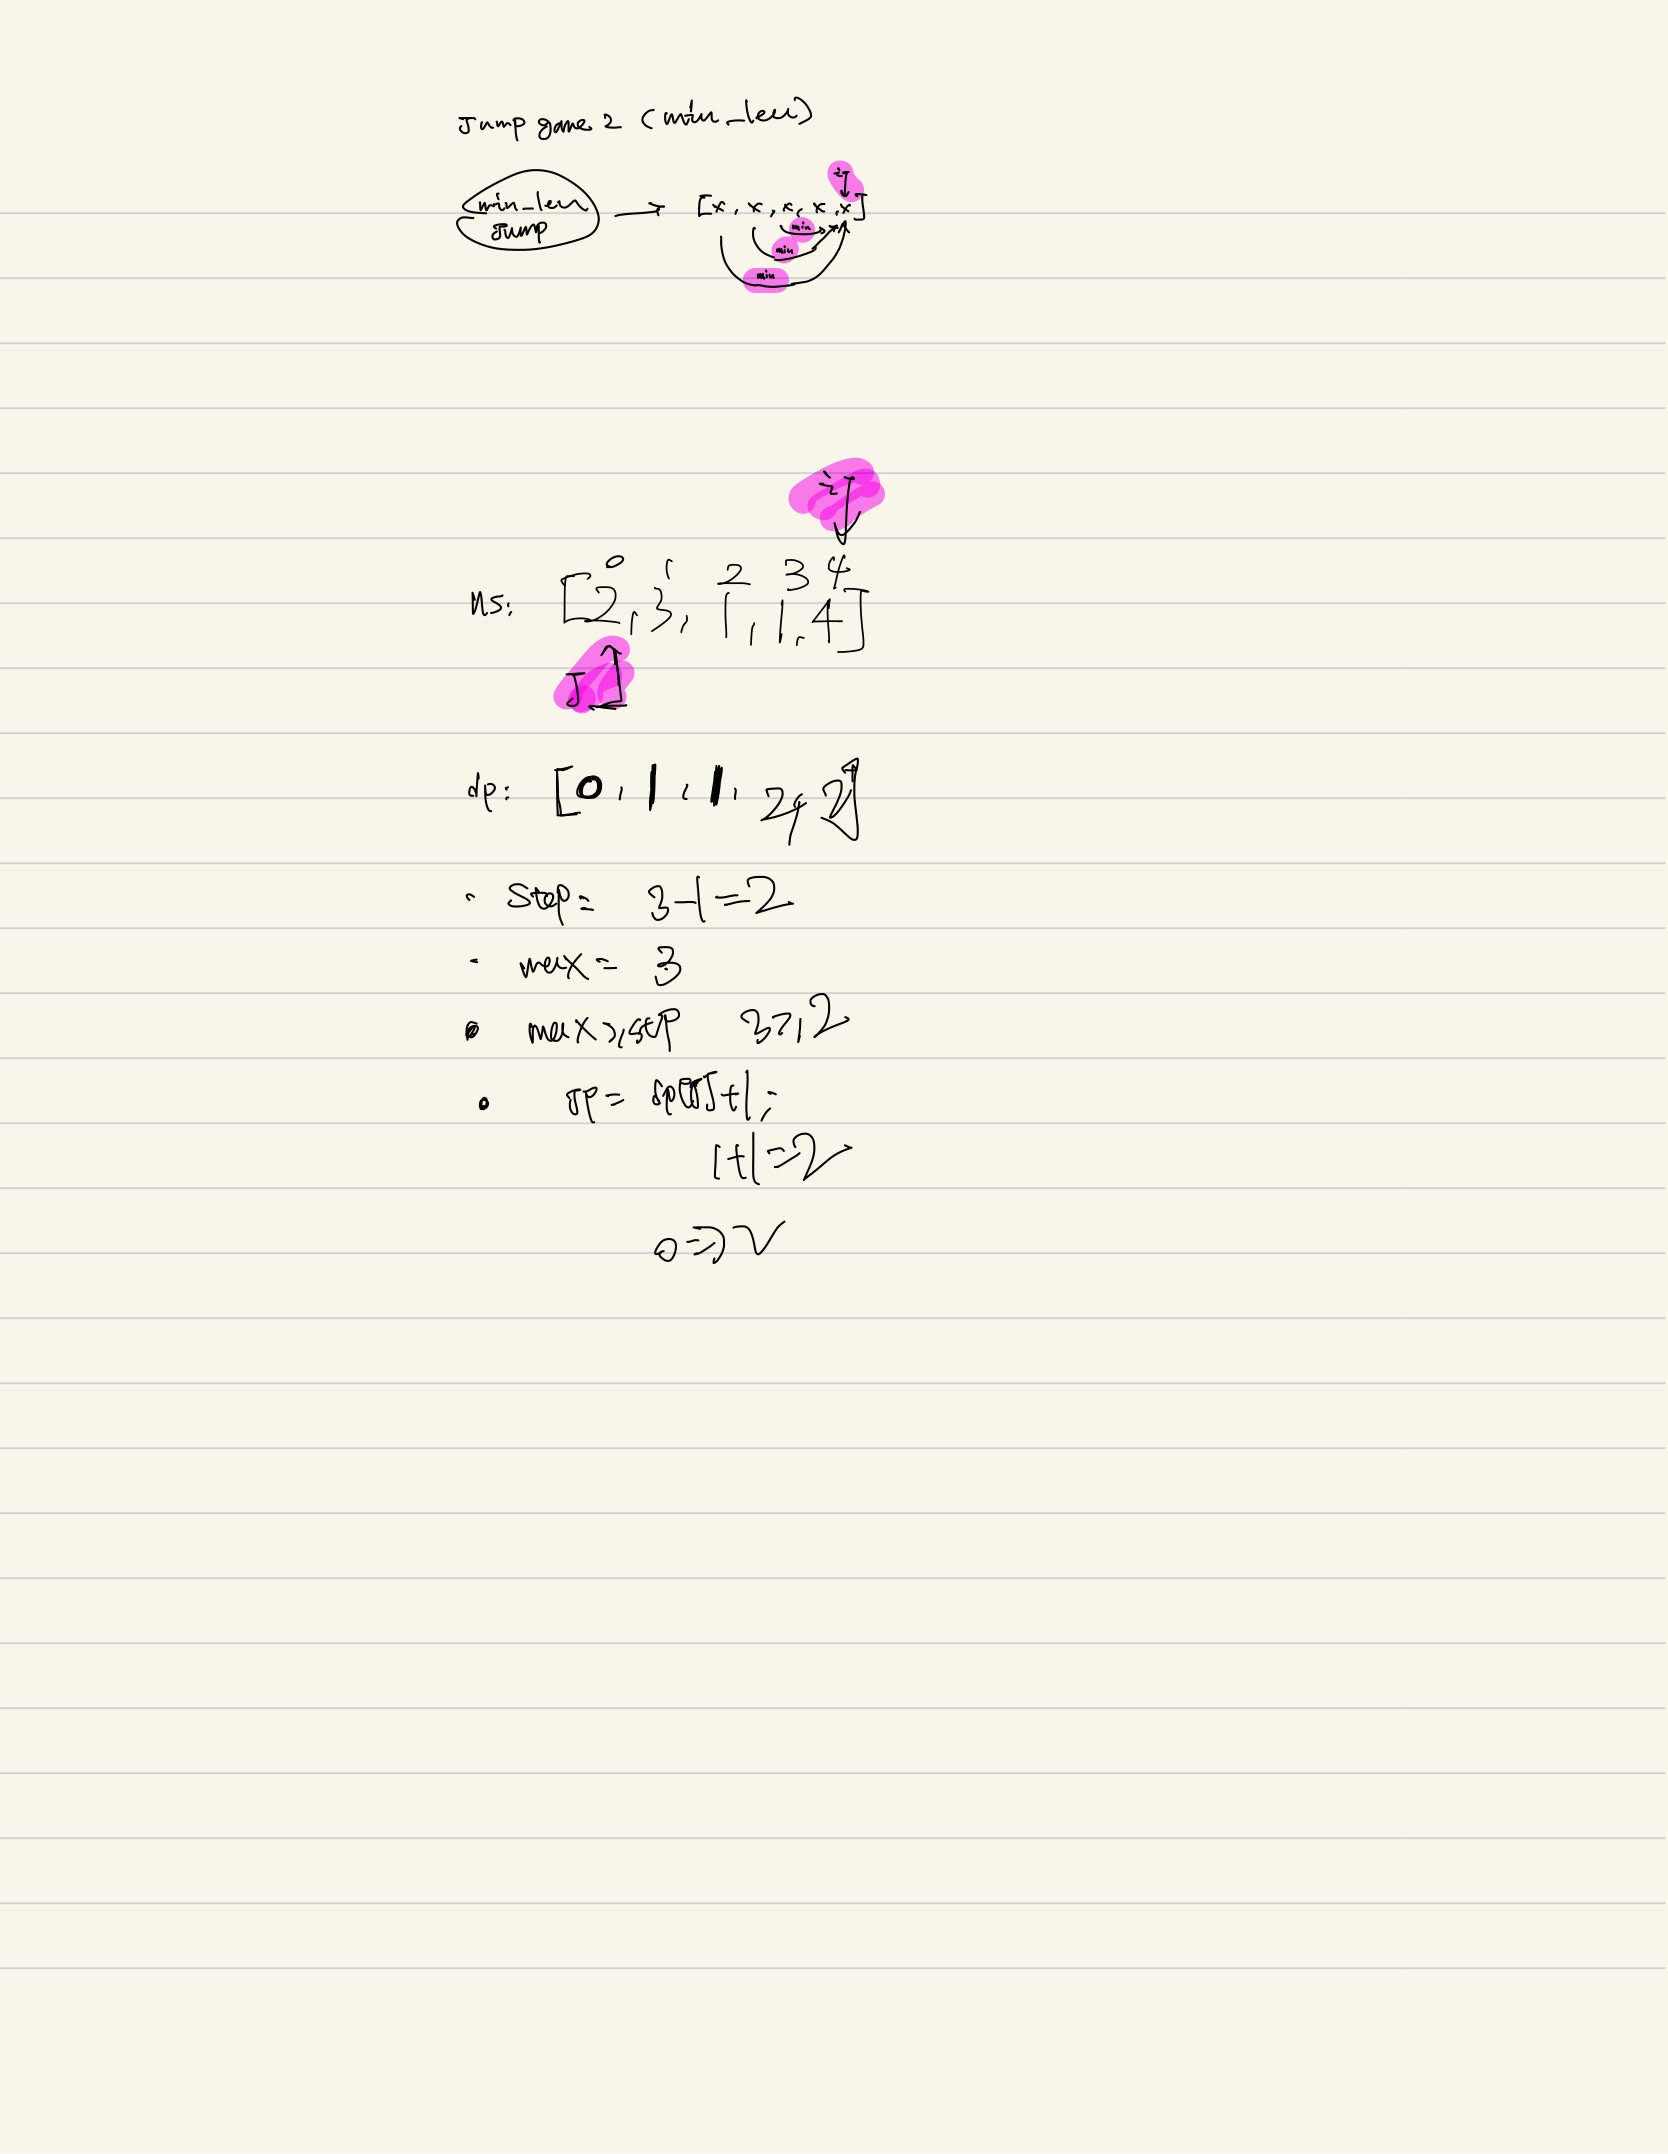 Jump game 2 (min_len)
i
min_len
Jump
[x, x, x, x, x]
min
min
min
i
0 1 2 3 4
ns: [2, 3, 1, 1, 4]
J
dp: [0, 1, 1, 2, 2]
· Step = 3-1=2
· max = 3
• max >, step 3>,2
• JP = dp[J]+1;
1+1=2
0=>